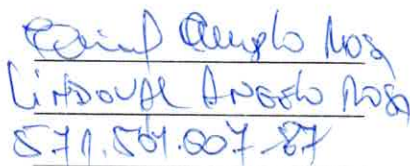 Angelo Rosa
Lindoval Angelo Rosa
571.501.007-87